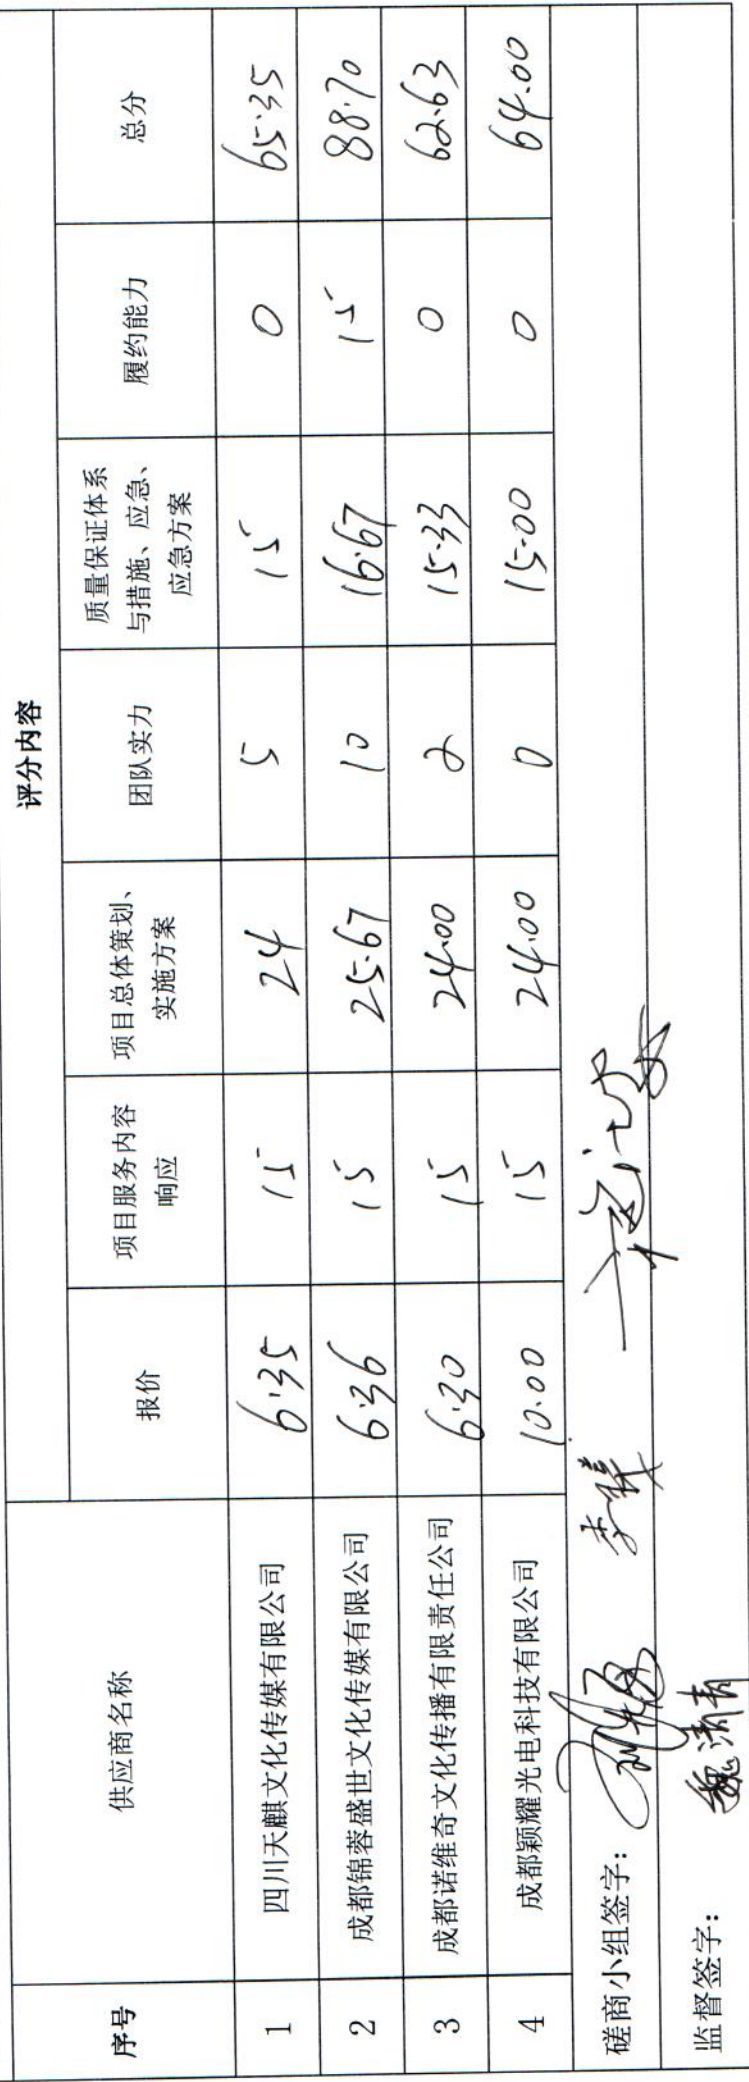 评分内容
序号 供应商名称 报价 项目服务内容响应 项目总体策划、实施方案 团队实力 质量保证体系与措施、应急、应急方案 履约能力 总分
1 四川天麒文化传媒有限公司 6.35 15 24 5 15 0 65.35
2 成都锦蓉盛世文化传媒有限公司 6.36 15 25.67 10 16.67 15 88.70
3 成都诺维奇文化传播有限责任公司 6.30 15 24.00 2 15.33 0 62.63
4 成都颖耀光电科技有限公司 10.00 15 24.00 0 15.00 0 64.00
磋商小组签字：
监督签字： 魏清青